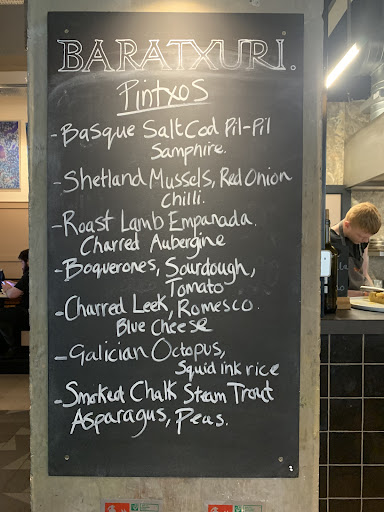 BARATXURI.
Pintxos
- Basque Salt Cod Pil-Pil
Samphire.
- Shetland Mussels, Red Onion
Chilli.
- Roast Lamb Empanada.
Charred Aubergine
- Boquerones, Sourdough,
Tomato
- Charred Leek, Romesco.
Blue Cheese
- Galician Octopus,
Squid ink rice
- Smoked Chalk Steam Trout
Asparagus, Peas.